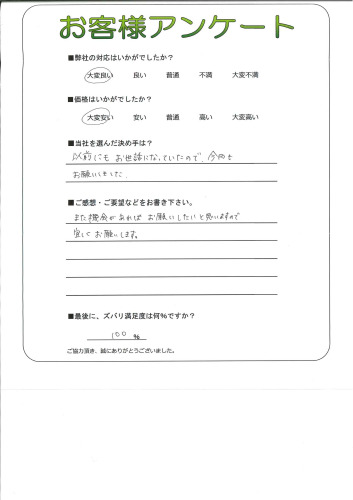 お客様アンケート
■弊社の対応はいかがでしたか?
大変良い 良い 普通 不満 大変不満
■価格はいかがでしたか?
大変安い 安い 普通 高い 大変高い
■当社を選んだ決め手は?
以前にもお世話になっていたので、今回も
お願いしました
■ご感想・ご要望などをお書き下さい。
また機会があればお願いしたいと思いますので
宜しくお願いします。
■最後に、ズバリ満足度は何%ですか?
100 %
ご協力頂き、誠にありがとうございました。